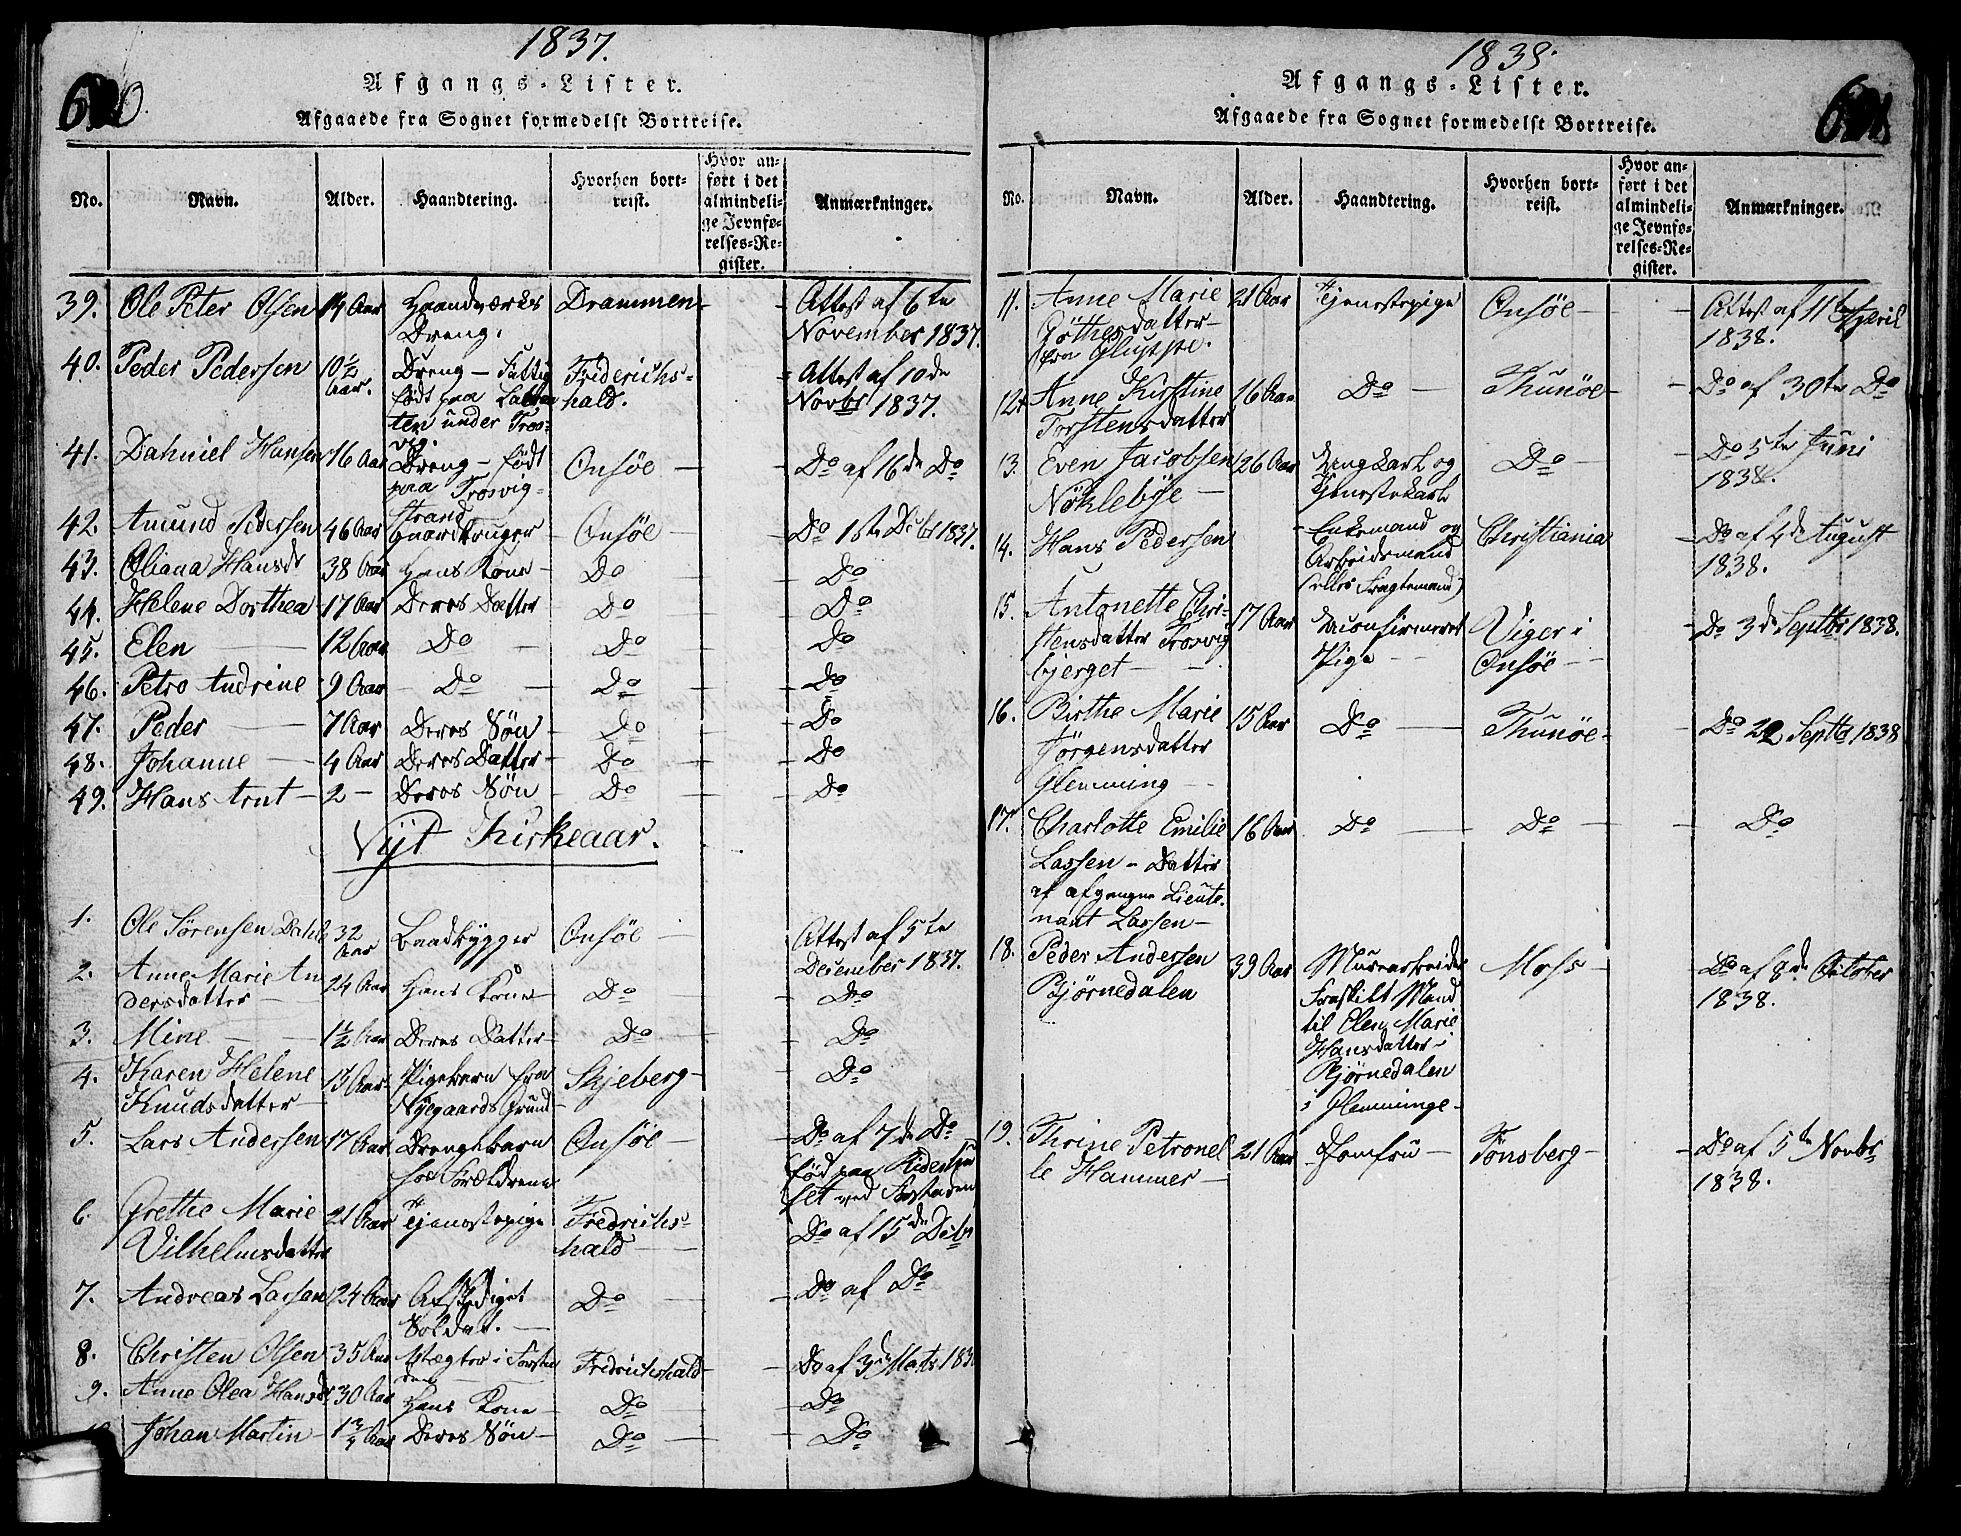 1837.
Afgangs-Lister.
Afgaaede fra Sognet formedelst Bortreise.
No. Navn. Alder. Haandtering. Hvorhen bortreist. Hvor anført i det almindelige Jevnførelses-Register. Anmærkninger.
39. Ole Peter Olsen 14 Aar Haandværks Drammen Attest af 6te
Dreng. November 1837.
40. Peder Pedersen 10½ Aar. Dreng - Fattig Frederichs- Attest af 10de
født paa hald. Novbr 1837.
ten under Tros-
vig.
41. Dahniel Hansen 16 Aar Dreng - født Onsöe Do af 16de Do
paa Trosvig-
strand
42. Amund Pedersen 46 Aar Gaardbruger Onsöe Do 1ste Decbr 1837.
43. Oliana Hansdr 38 Aar Hans Kone Do Do
44. Helene Dorthea 17 Aar Deres Datter Do Do
45. Elen 12 Aar Do Do Do
46. Petro Andrine 9 Aar Do Do Do
47. Peder 7 Aar Deres Søn Do Do
48. Johanne 4 Aar Deres Datter Do Do
49. Hans Arnt 2 - Deres Søn Do Do
Nyt Kirkeaar.
1. Ole Sörensen Dahl 32 Aar Baadbygger Onsöe Attest af 5te
December 1837.
2. Anne Marie An 24 Aar Hans Kone Do Do
dersdatter
3. Mine 1½ Aar Deres Datter Do Do
4. Karen Helene 13 Aar Pigebarn fra Skjeberg Do
Knudsdatter Nyegaards Grund
5. Lars Andersen 17 Aar Drengebarn Onsöe Do af 7de Do
hos Forældrene fød paa
set ved Forstaden
6. Grethe Marie 21 Aar Tjenestepige Fredrichs- Do af 15de Decbr
Vilhelmsdatter hald
7. Andreas Larsen 24 Aar Afskediget Do Do af Do
Soldat.
8. Christen Olsen 35 Aar Vægter i Forsta Fredrichshald Do af 3de Marts 183
den
9. Anne Olea Hansdr 30 Aar Hans Kone Do Do
Johan Martin 1¾ Aar Deres Søn Do Do
1838.
Afgangs-Lister.
Afgaaede fra Sognet formedelst Bortreise.
No. Navn. Alder. Haandtering. Hvorhen bortreist. Hvor anført i det almindelige Jevnførelses-Register. Anmærkninger.
11. Anne Marie 21 Aar Tjenestepige Onsöe Attest af 11te April
Göthesdatter 1838.
fra
12. Anne Kirstine 16 Aar Do Thunöe Do af 30te Do
Torstensdatter
13. Even Jacobsen 26 Aar Ungkarl og Do Do 5te Juni
Nöklebÿe Tjenestekarl 1838.
14. Hans Pedersen Enkemand og Christiania Do af 4de August
Arbeidsmand 1838.
(eller Fragtemand)
15. Antonette Chri- 17 Aar Uconfirmeret Viger i Do 3de Septbr 1838.
stensdatter Trosvig Pige Onsöe
bjerget
16. Birthe Marie 15 Aar Do Thunöe Do 22 Septbr 1838
Jörgensdatter
Glemming
17. Charlotte Emilie 16 Aar Do Do Do
Lassen - Datter
af afgangne Lieute-
nant Lassen
18. Peder Andersen 39 Aar Murarbeider Moss Do af 8de October
Bjørnedalen Fraskilt Mand 1838.
til Elen Marie
Hansdatter i
Bjørnedalen
i Glemminge
19. Thrine Petronel 21 Aar Jomfru Tönsberg Do af 5te Novbr
le Hammer 1838.